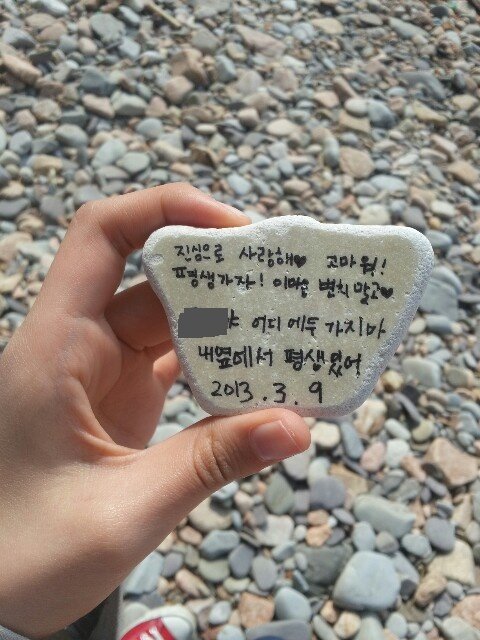 진심으로 사랑해♥ 고마워!
평생가자! 이마음 변치말고♥
야 어디에두 가지마
내옆에서 평생있어
2013.3.9